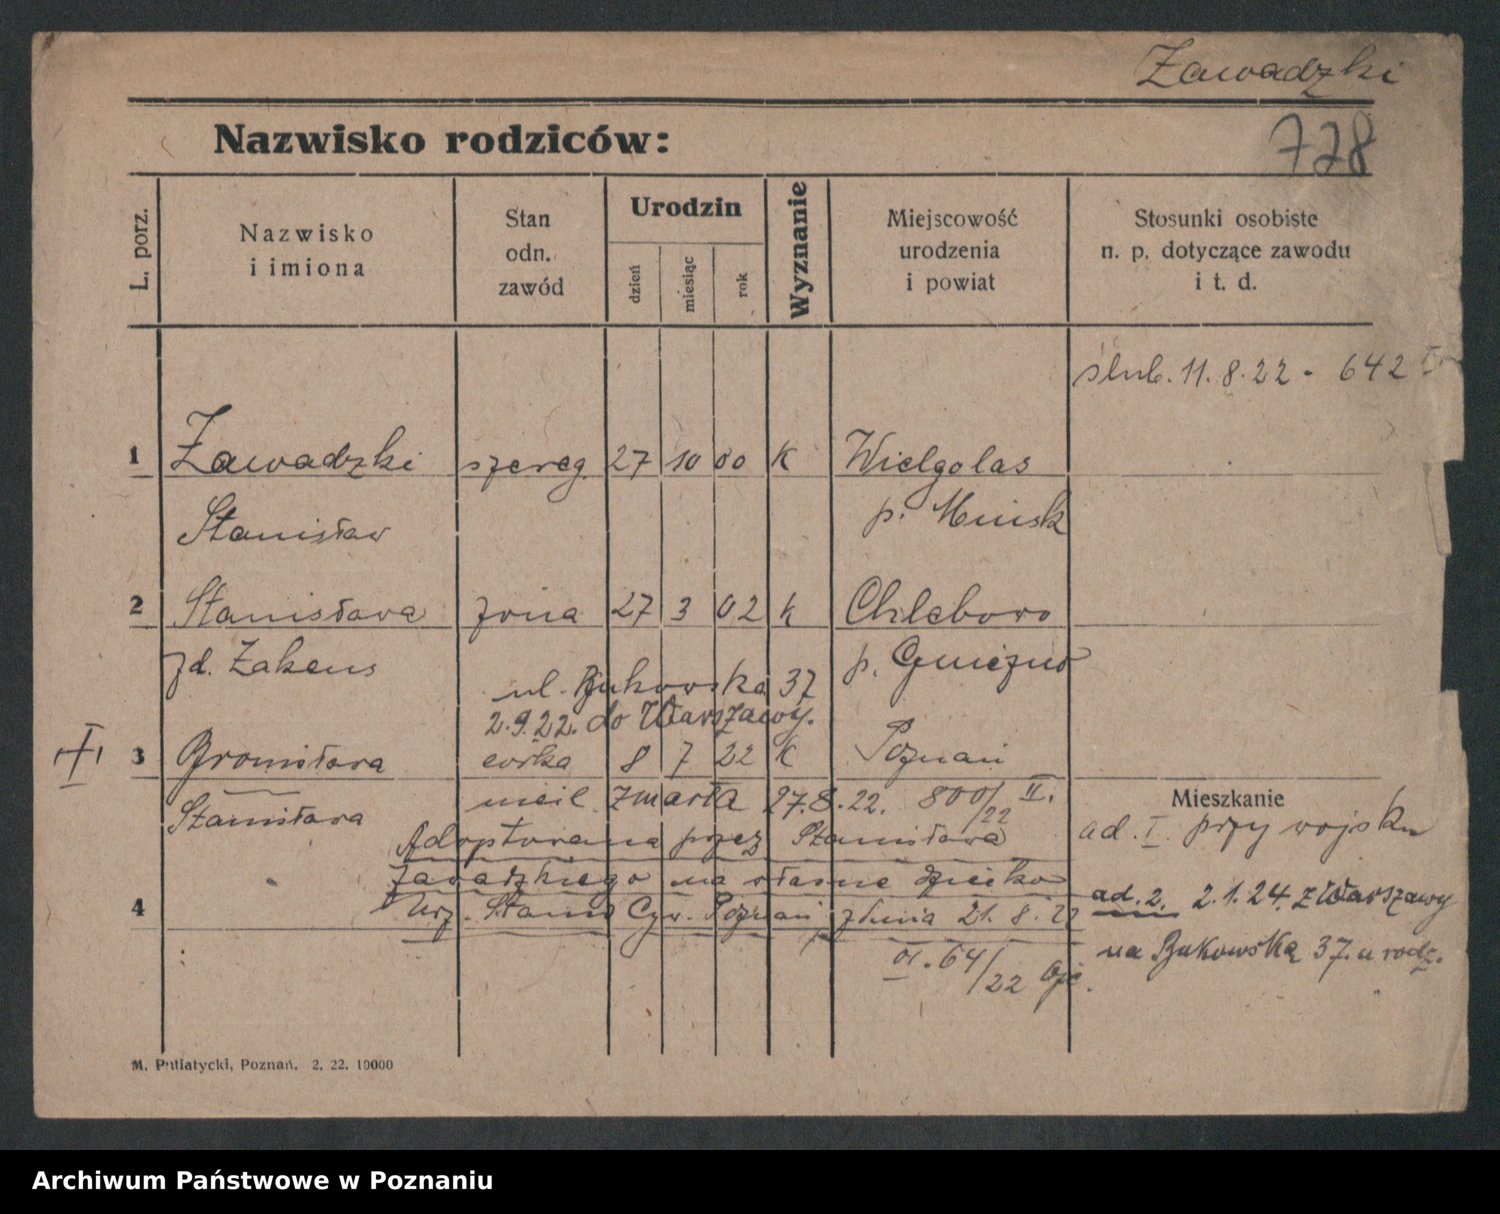 Zawadzki
Nazwisko rodziców:
778
L. porz.
Nazwisko
i imiona
Stan
odn.
zawód
Urodzin
dzień
miesiąc
rok
Wyznanie
Miejscowość
urodzenia
i powiat
Stosunki osobiste
n. p. dotyczące zawodu
i t. d.
ślub. 11. 8. 22 - 642 I
1 Zawadzki szereg. 27 10 00 K Wielgolas
Stanisław p. Minsk
2 Stanisława żona 27 3 02 k Chlebowo
zd. Zakens p. Gniezno
ul. Bukowska 37
2.9.22. do Warszawy.
I
3 Bronisława córka 8 7 22 K Poznań
Stanisława nieil. zmarła 27.8.22. 800/22 II.
Mieszkanie
Adoptowana przez Stanisława
ad. I. przy wojsku
Zawadzkiego na własne dziecko
4 Urz. Stanu Cyw. Poznań z dnia 21. 8. 22
ad. 2. 2.1.24. z Warszawy
VI. 64/22
na Bukowską 37. u rodz.
M. Putiatycki, Poznań. 2. 22. 10000
Archiwum Państwowe w Poznaniu